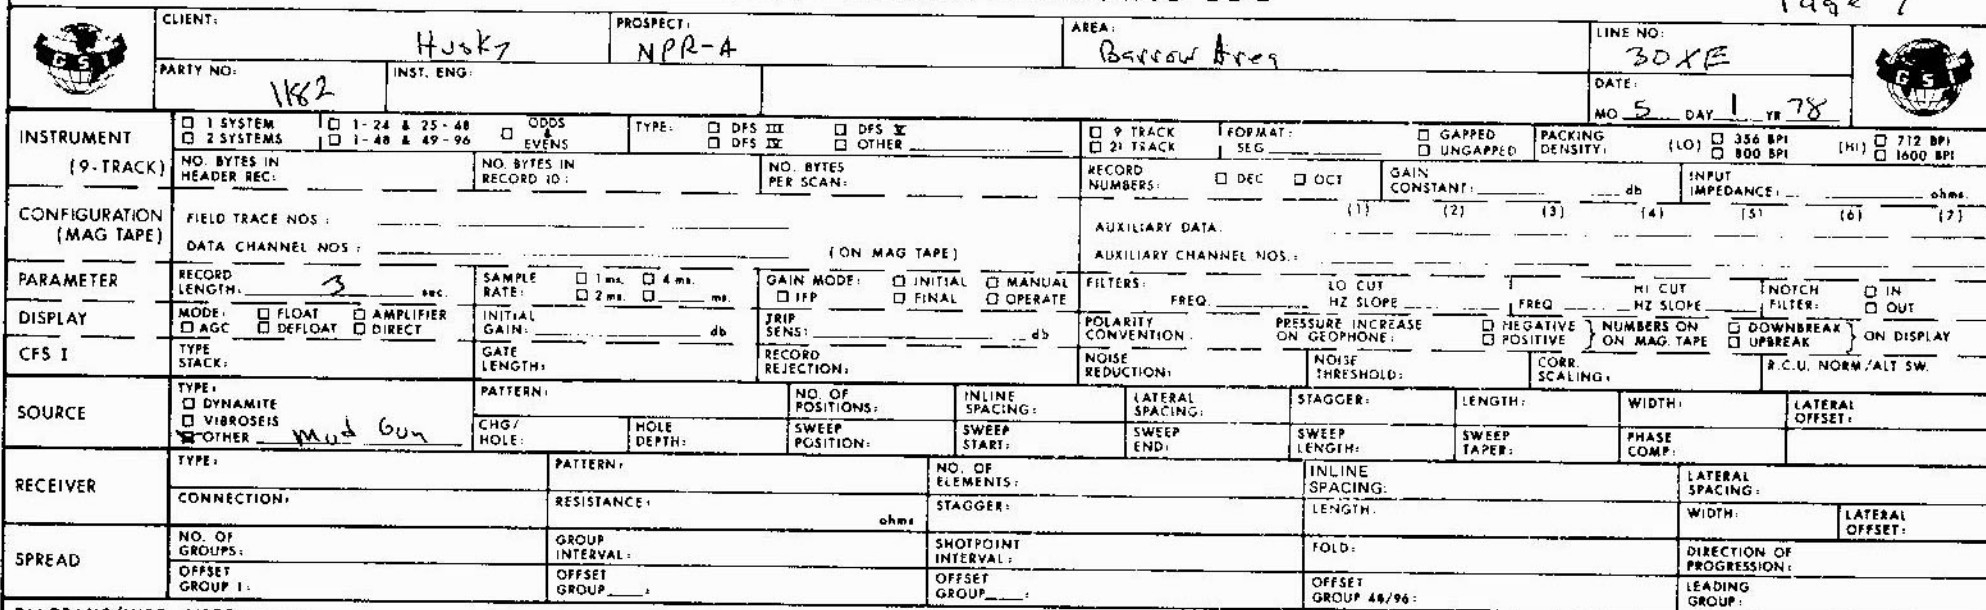 Page 7
CLIENT: Husky PROSPECT: NPR-A AREA: Barrow Area LINE NO: 30XE
GSI GSI
PARTY NO: 1182 INST. ENG: DATE: MO 5 DAY 1 YR 78
INSTRUMENT (9-TRACK)
☐ 1 SYSTEM ☐ 1-24 & 25-48 ☐ ODDS & EVENS TYPE: ☐ DFS III ☐ DFS V ☐ 9 TRACK FORMAT: ☐ GAPPED PACKING DENSITY: (LO) ☐ 356 BPI (HI) ☐ 712 BPI
☐ 2 SYSTEMS ☐ 1-48 & 49-96 ☐ DFS IV ☐ OTHER ☐ 21 TRACK SEG ☐ UNGAPPED ☐ 800 BPI ☐ 1600 BPI
NO. BYTES IN HEADER REC: NO. BYTES IN RECORD ID: NO. BYTES PER SCAN: RECORD NUMBERS: ☐ DEC ☐ OCT GAIN CONSTANT: db INPUT IMPEDANCE: ohms.
CONFIGURATION (MAG TAPE)
FIELD TRACE NOS: AUXILIARY DATA: (1) (2) (3) (4) (5) (6) (7)
DATA CHANNEL NOS: (ON MAG TAPE) AUXILIARY CHANNEL NOS.:
PARAMETER RECORD LENGTH: 3 sec. SAMPLE RATE: ☐ 1 ms. ☐ 4 ms. ☐ 2 ms. ☐ ms. GAIN MODE: ☐ INITIAL ☐ MANUAL ☐ IFP ☐ FINAL ☐ OPERATE FILTERS: FREQ. LO CUT HZ SLOPE FREQ HI CUT HZ SLOPE NOTCH FILTER: ☐ IN ☐ OUT
DISPLAY MODE: ☐ FLOAT ☐ AMPLIFIER ☐ AGC ☐ DEFLOAT ☐ DIRECT INITIAL GAIN: db TRIP SENS: db POLARITY CONVENTION: PRESSURE INCREASE ON GEOPHONE: ☐ NEGATIVE ☐ POSITIVE } NUMBERS ON MAG. TAPE ☐ DOWNBREAK ☐ UPBREAK } ON DISPLAY
CFS I TYPE STACK: GATE LENGTH: RECORD REJECTION: NOISE REDUCTION: NOISE THRESHOLD: CORR. SCALING: R.C.U. NORM/ALT SW.
SOURCE TYPE: ☐ DYNAMITE ☐ VIBROSEIS ☒ OTHER Mud Gun
PATTERN: NO. OF POSITIONS: INLINE SPACING: LATERAL SPACING: STAGGER: LENGTH: WIDTH: LATERAL OFFSET:
CHG/HOLE: HOLE DEPTH: SWEEP POSITION: SWEEP START: SWEEP END: SWEEP LENGTH: SWEEP TAPER: PHASE COMP:
RECEIVER TYPE: PATTERN: NO. OF ELEMENTS: INLINE SPACING: LATERAL SPACING:
CONNECTION: RESISTANCE: ohms STAGGER: LENGTH: WIDTH: LATERAL OFFSET:
SPREAD NO. OF GROUPS: GROUP INTERVAL: SHOTPOINT INTERVAL: FOLD: DIRECTION OF PROGRESSION:
OFFSET GROUP 1: OFFSET GROUP : OFFSET GROUP : OFFSET GROUP 48/96: LEADING GROUP: